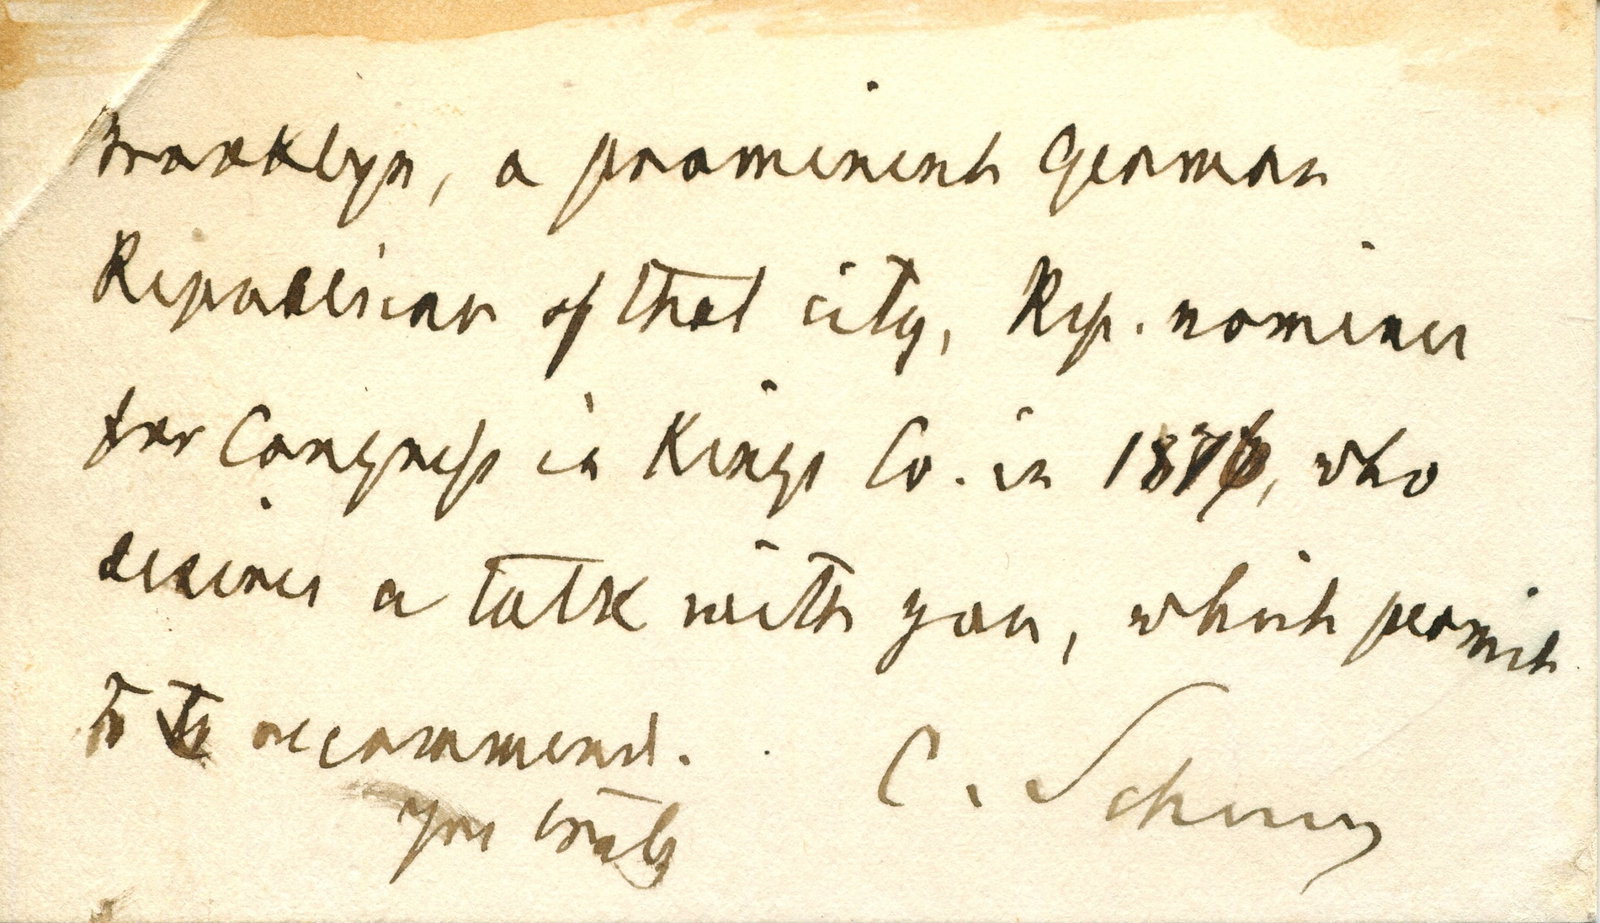 Brooklyn, a prominent German
Republican of that city, Rep. nominee
for Congress in Kings Co. in 1876, who
desires a talk with you, which permit
to recommend.
C. Schurz
Yrs truly